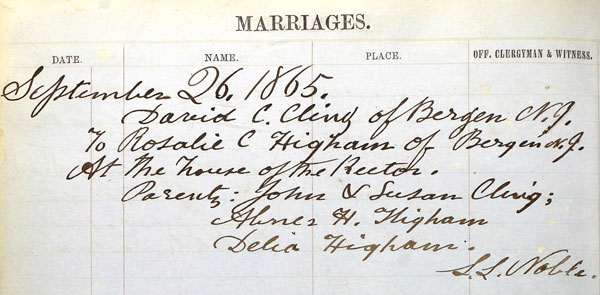 MARRIAGES.
DATE. NAME. PLACE. OFF. CLERGYMAN & WITNESS.
September 26. 1865.
David C. Cling of Bergen N.J.
To Rosalie C Higham of Bergen N.J.
At the house of the Rector.
Parents: John & Susan Cling;
Abner H. Higham
Delia Higham.
S.L. Noble.